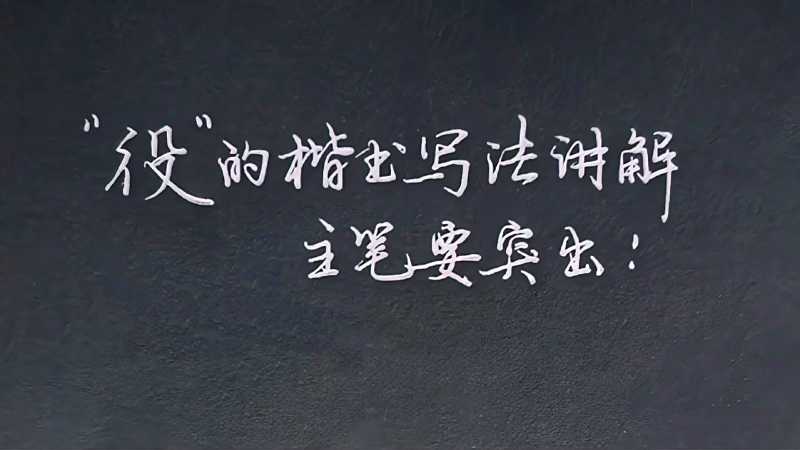 “役”的楷书写法讲解
主笔要突出！